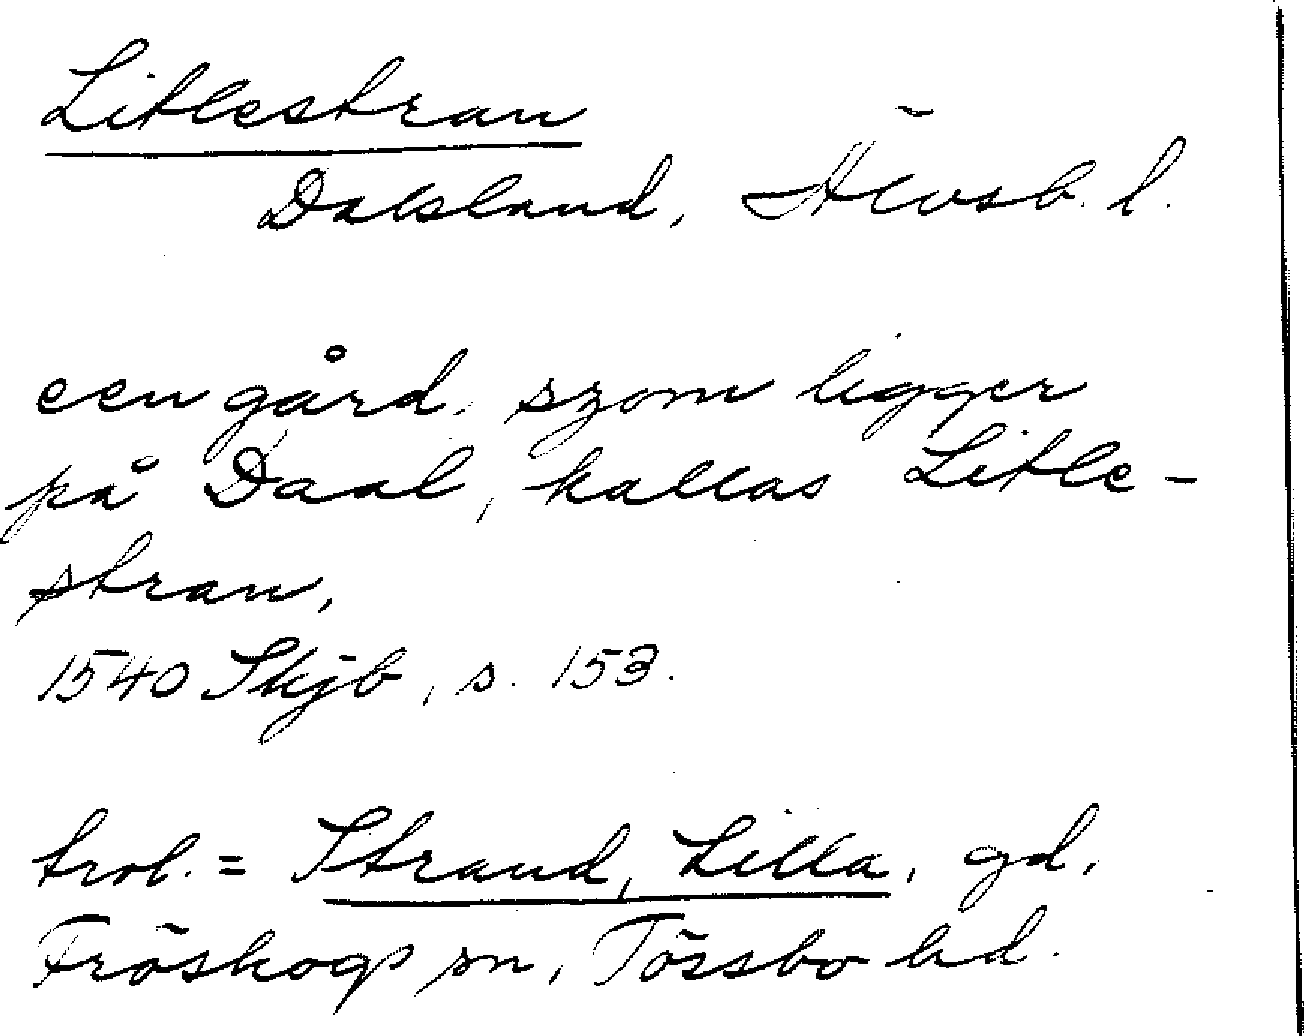 Litlestran
Dalsland, Älvsb. l.
een gård, szom ligger
på Daal, kallas Litle-
stran,
1540 Skjb, s. 153.
trol. = Strand, Lilla, gd,
Fröskogs sn, Tössbo hd.